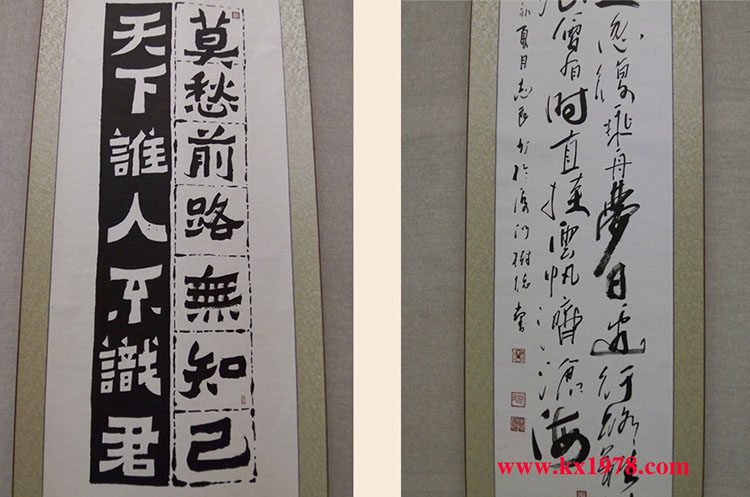 莫愁前路無知己
天下誰人不識君
忽復乘舟夢日邊行路難
會有時直挂雲帆濟滄海
夏月志民书於
www.kx1978.com